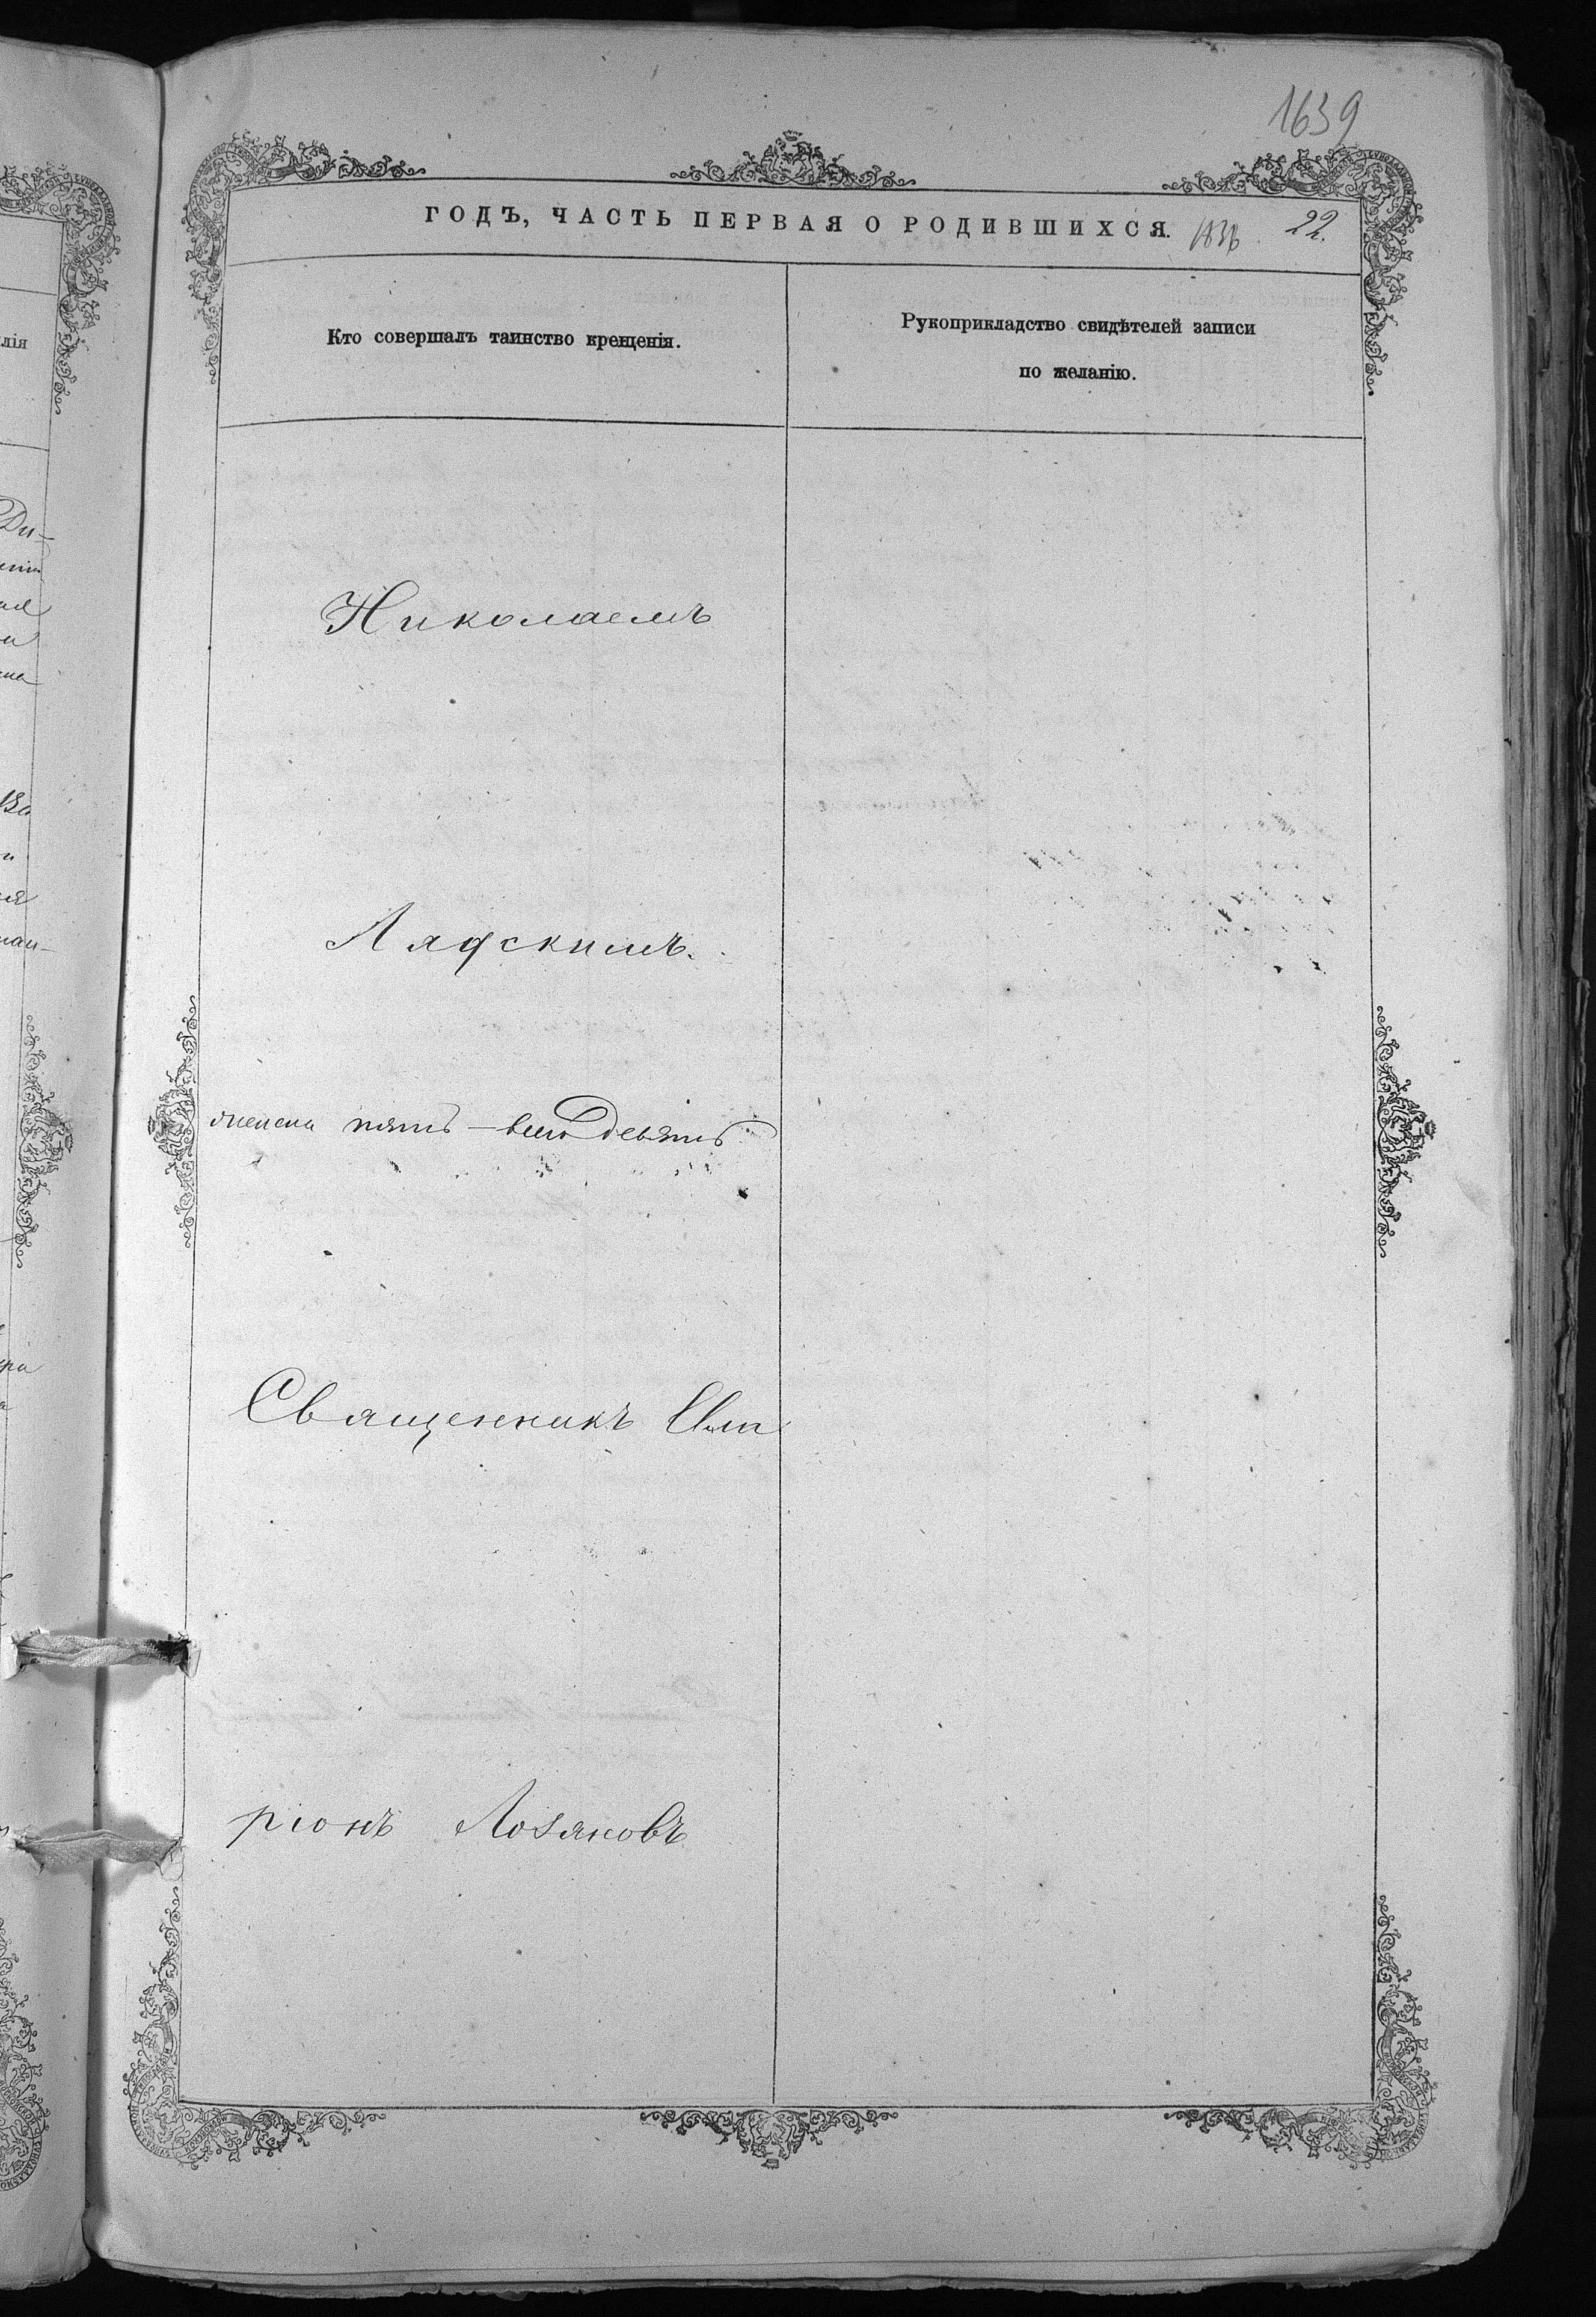 1639
ГОДЪ, ЧАСТЬ ПЕРВАЯ О РОДИВШИХСЯ.
22.
Кто совершалъ таинство крещенія.
Рукоприкладство свидѣтелей записи
по желанію.
Николаемъ
Лядскимъ.
женска пять – всего девять
Священникъ Ила
ріонъ Лозяновъ
лія